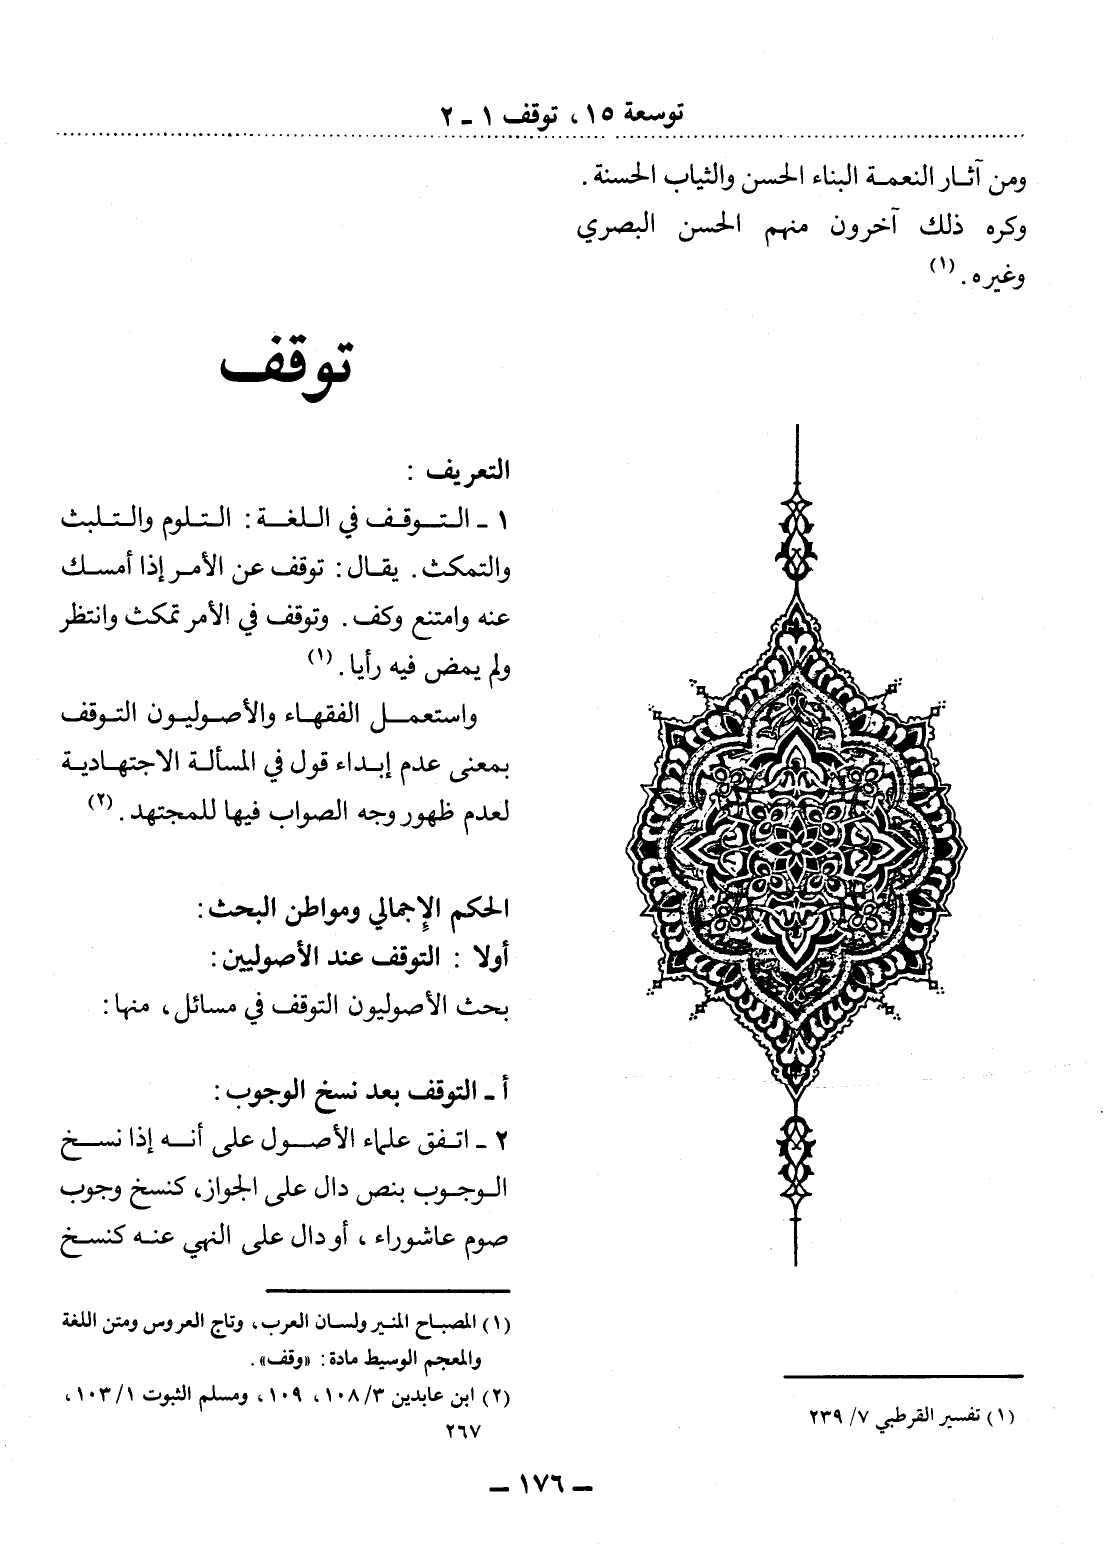 توسعة ١٥، توقف ١ - ٢
ومن آثار النعمة البناء الحسن والثياب الحسنة.
وكره ذلك آخرون منهم الحسن البصري
وغيره.(١)
(١) تفسير القرطبي ٧/ ٢٣٩
توقف
التعريف:
١ - التوقف في اللغة: التلوم والتلبث
والتمكث. يقال: توقف عن الأمر إذا أمسك
عنه وامتنع وكف. وتوقف في الأمر تمكث وانتظر
ولم يمض فيه رأيا.(١)
واستعمل الفقهاء والأصوليون التوقف
بمعنى عدم إبداء قول في المسألة الاجتهادية
لعدم ظهور وجه الصواب فيها للمجتهد.(٢)
الحكم الإجمالي ومواطن البحث:
أولا : التوقف عند الأصوليين:
بحث الأصوليون التوقف في مسائل، منها:
أ - التوقف بعد نسخ الوجوب:
٢ - اتفق علماء الأصول على أنه إذا نسخ
الوجوب بنص دال على الجواز، كنسخ وجوب
صوم عاشوراء، أو دال على النهي عنه كنسخ
(١) المصباح المنير ولسان العرب، وتاج العروس ومتن اللغة
والمعجم الوسيط مادة: «وقف».
(٢) ابن عابدين ٣/ ١٠٨، ١٠٩، ومسلم الثبوت ١/ ١٠٣،
٢٦٧
- ١٧٦ -